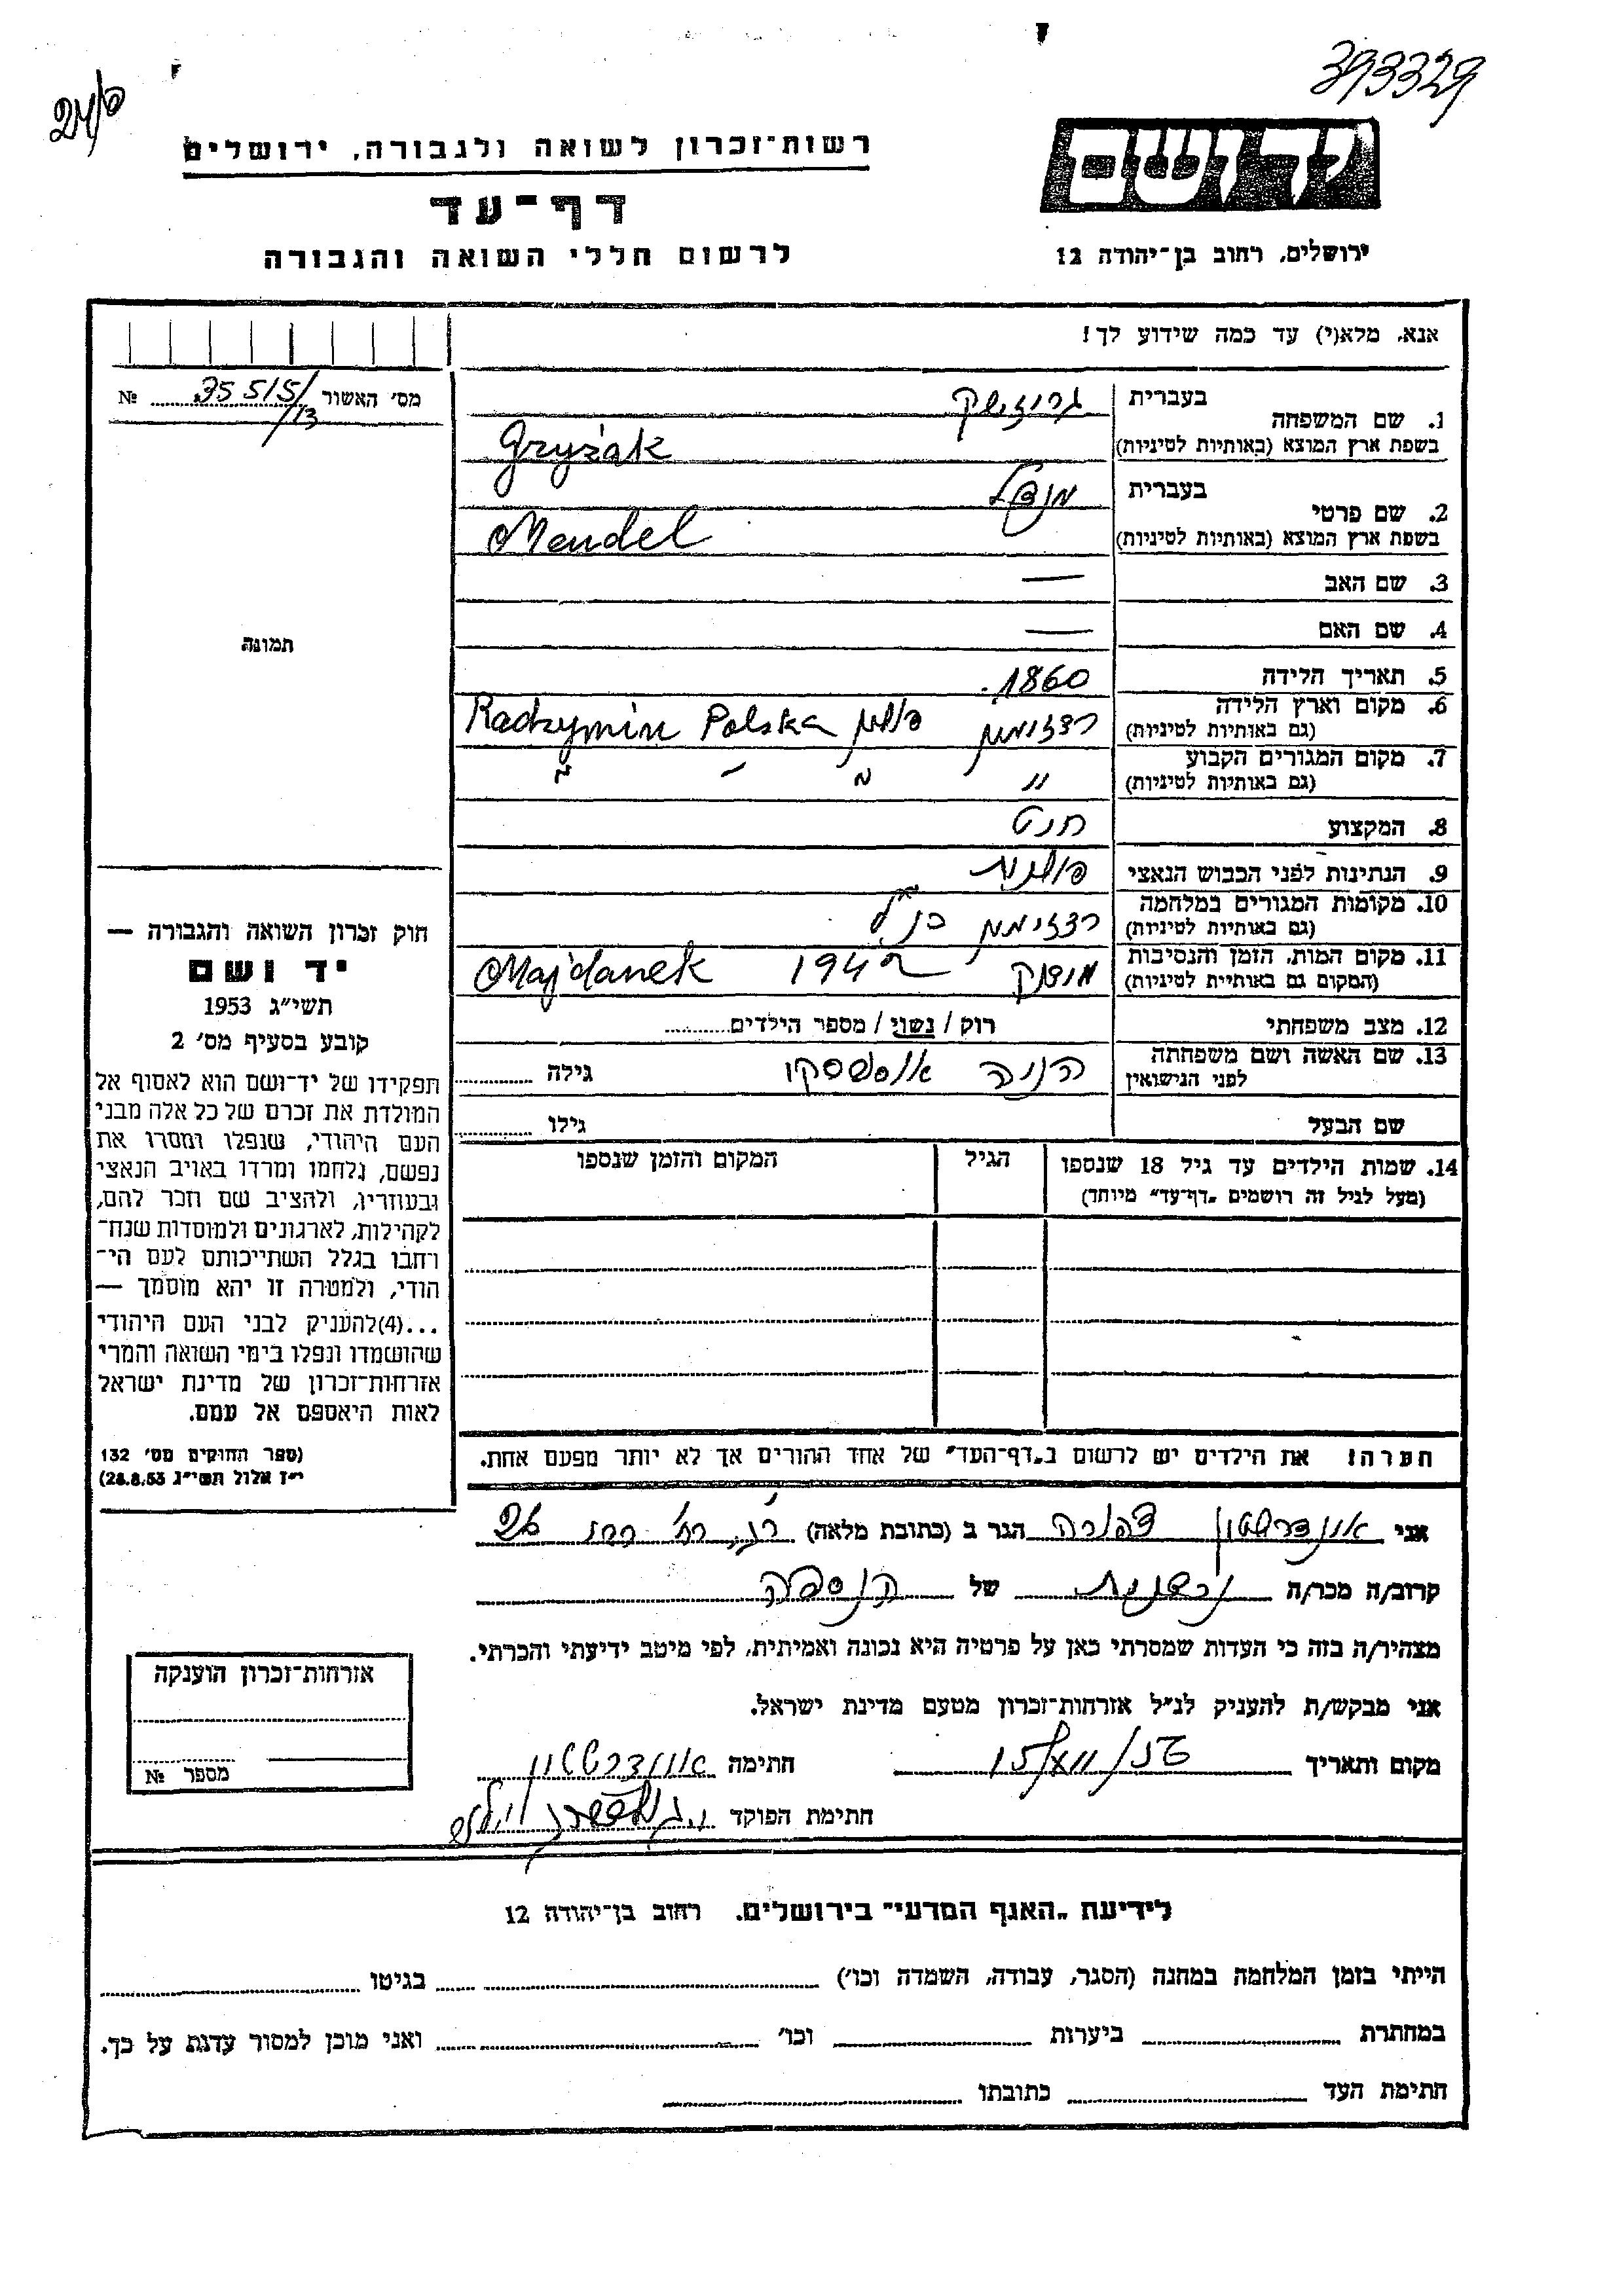 393329
24/פ
רשות־זכרון לשואה ולגבורה, ירושלים
דף־עד
לרשום חללי השואה והגבורה
יד ושם
ירושלים, רחוב בן־יהודה 12
אנא, מלא(י) עד כמה שידוע לך!
מס׳ האשור 35515/13 №
תמונה
1. שם המשפחה
בעברית גריזשק
בשפת ארץ המוצא (באותיות לטיניות) Gryżak
2. שם פרטי
בעברית מנדל
בשפת ארץ המוצא (באותיות לטיניות) Mendel
3. שם האב —
4. שם האם —
5. תאריך הלידה 1860.
6. מקום וארץ הלידה
(גם באותיות לטיניות) רדזימין פולין Radzymin Polska
7. מקום המגורים הקבוע
(גם באותיות לטיניות) " " " "
8. המקצוע חנט
9. הנתינות לפני הכבוש הנאצי פולנית
10. מקומות המגורים במלחמה
(גם באותיות לטיניות) רדזימין כנ"ל
11. מקום המות, הזמן והנסיבות
(המקום גם באותיית לטיניות) מידנק 1942 Majdanek
12. מצב משפחתי רוק / נשוי / מספר הילדים
13. שם האשה ושם משפחתה
לפני הנישואין הניה גילה
שם הבעל גילו
14. שמות הילדים עד גיל 18 שנספו הגיל המקום והזמן שנספו
(מעל לגיל זה רושמים „דף־עד״ מיוחד)
הערה! את הילדים יש לרשום ב„דף־העד״ של אחד ההורים אך לא יותר מפעם אחת.
חוק זכרון השואה והגבורה —
יד ושם
תשי״ג 1953
קובע בסעיף מס׳ 2
תפקידו של יד־ושם הוא לאסוף אל
המולדת את זכרם של כל אלה מבני
העם היהודי, שנפלו ומסרו את
נפשם, נלחמו ומרדו באויב הנאצי
ובעוזריו, ולהציב שם וזכר להם,
לקהילות, לארגונים ולמוסדות שנח־
רחבו בגלל השתייכותם לעם הי־
הודי, ולמטרה זו יהא מוסמך —
...(4) להעניק לבני העם היהודי
שהושמדו ונפלו בימי השואה והמרי
אזרחות־זכרון של מדינת ישראל
לאות היאספם אל עמם.
(ספר החוקים מס׳ 132
י״ז אלול תשי״ג 28.8.53)
אני צפורה הגר ב (כתובת מלאה) 26
קרוב/ה מכר/ה של הנספה
מצהיר/ה בזה כי העדות שמסרתי כאן על פרטיה היא נכונה ואמיתית, לפי מיטב ידיעתי והכרתי.
אני מבקש/ת להעניק לנ״ל אזרחות־זכרון מטעם מדינת ישראל.
מקום ותאריך חתימה
חתימת הפוקד
אזרחות־זכרון הוענקה
מספר №
לידיעת „האגף המדעי״ בירושלים. רחוב בן־יהודה 12
הייתי בזמן המלחמה במחנה (הסגר, עבודה, השמדה וכו׳) בגיטו
במחתרת ביערות וכו׳ ואני מוכן למסור עדות על כך.
חתימת העד כתובתו